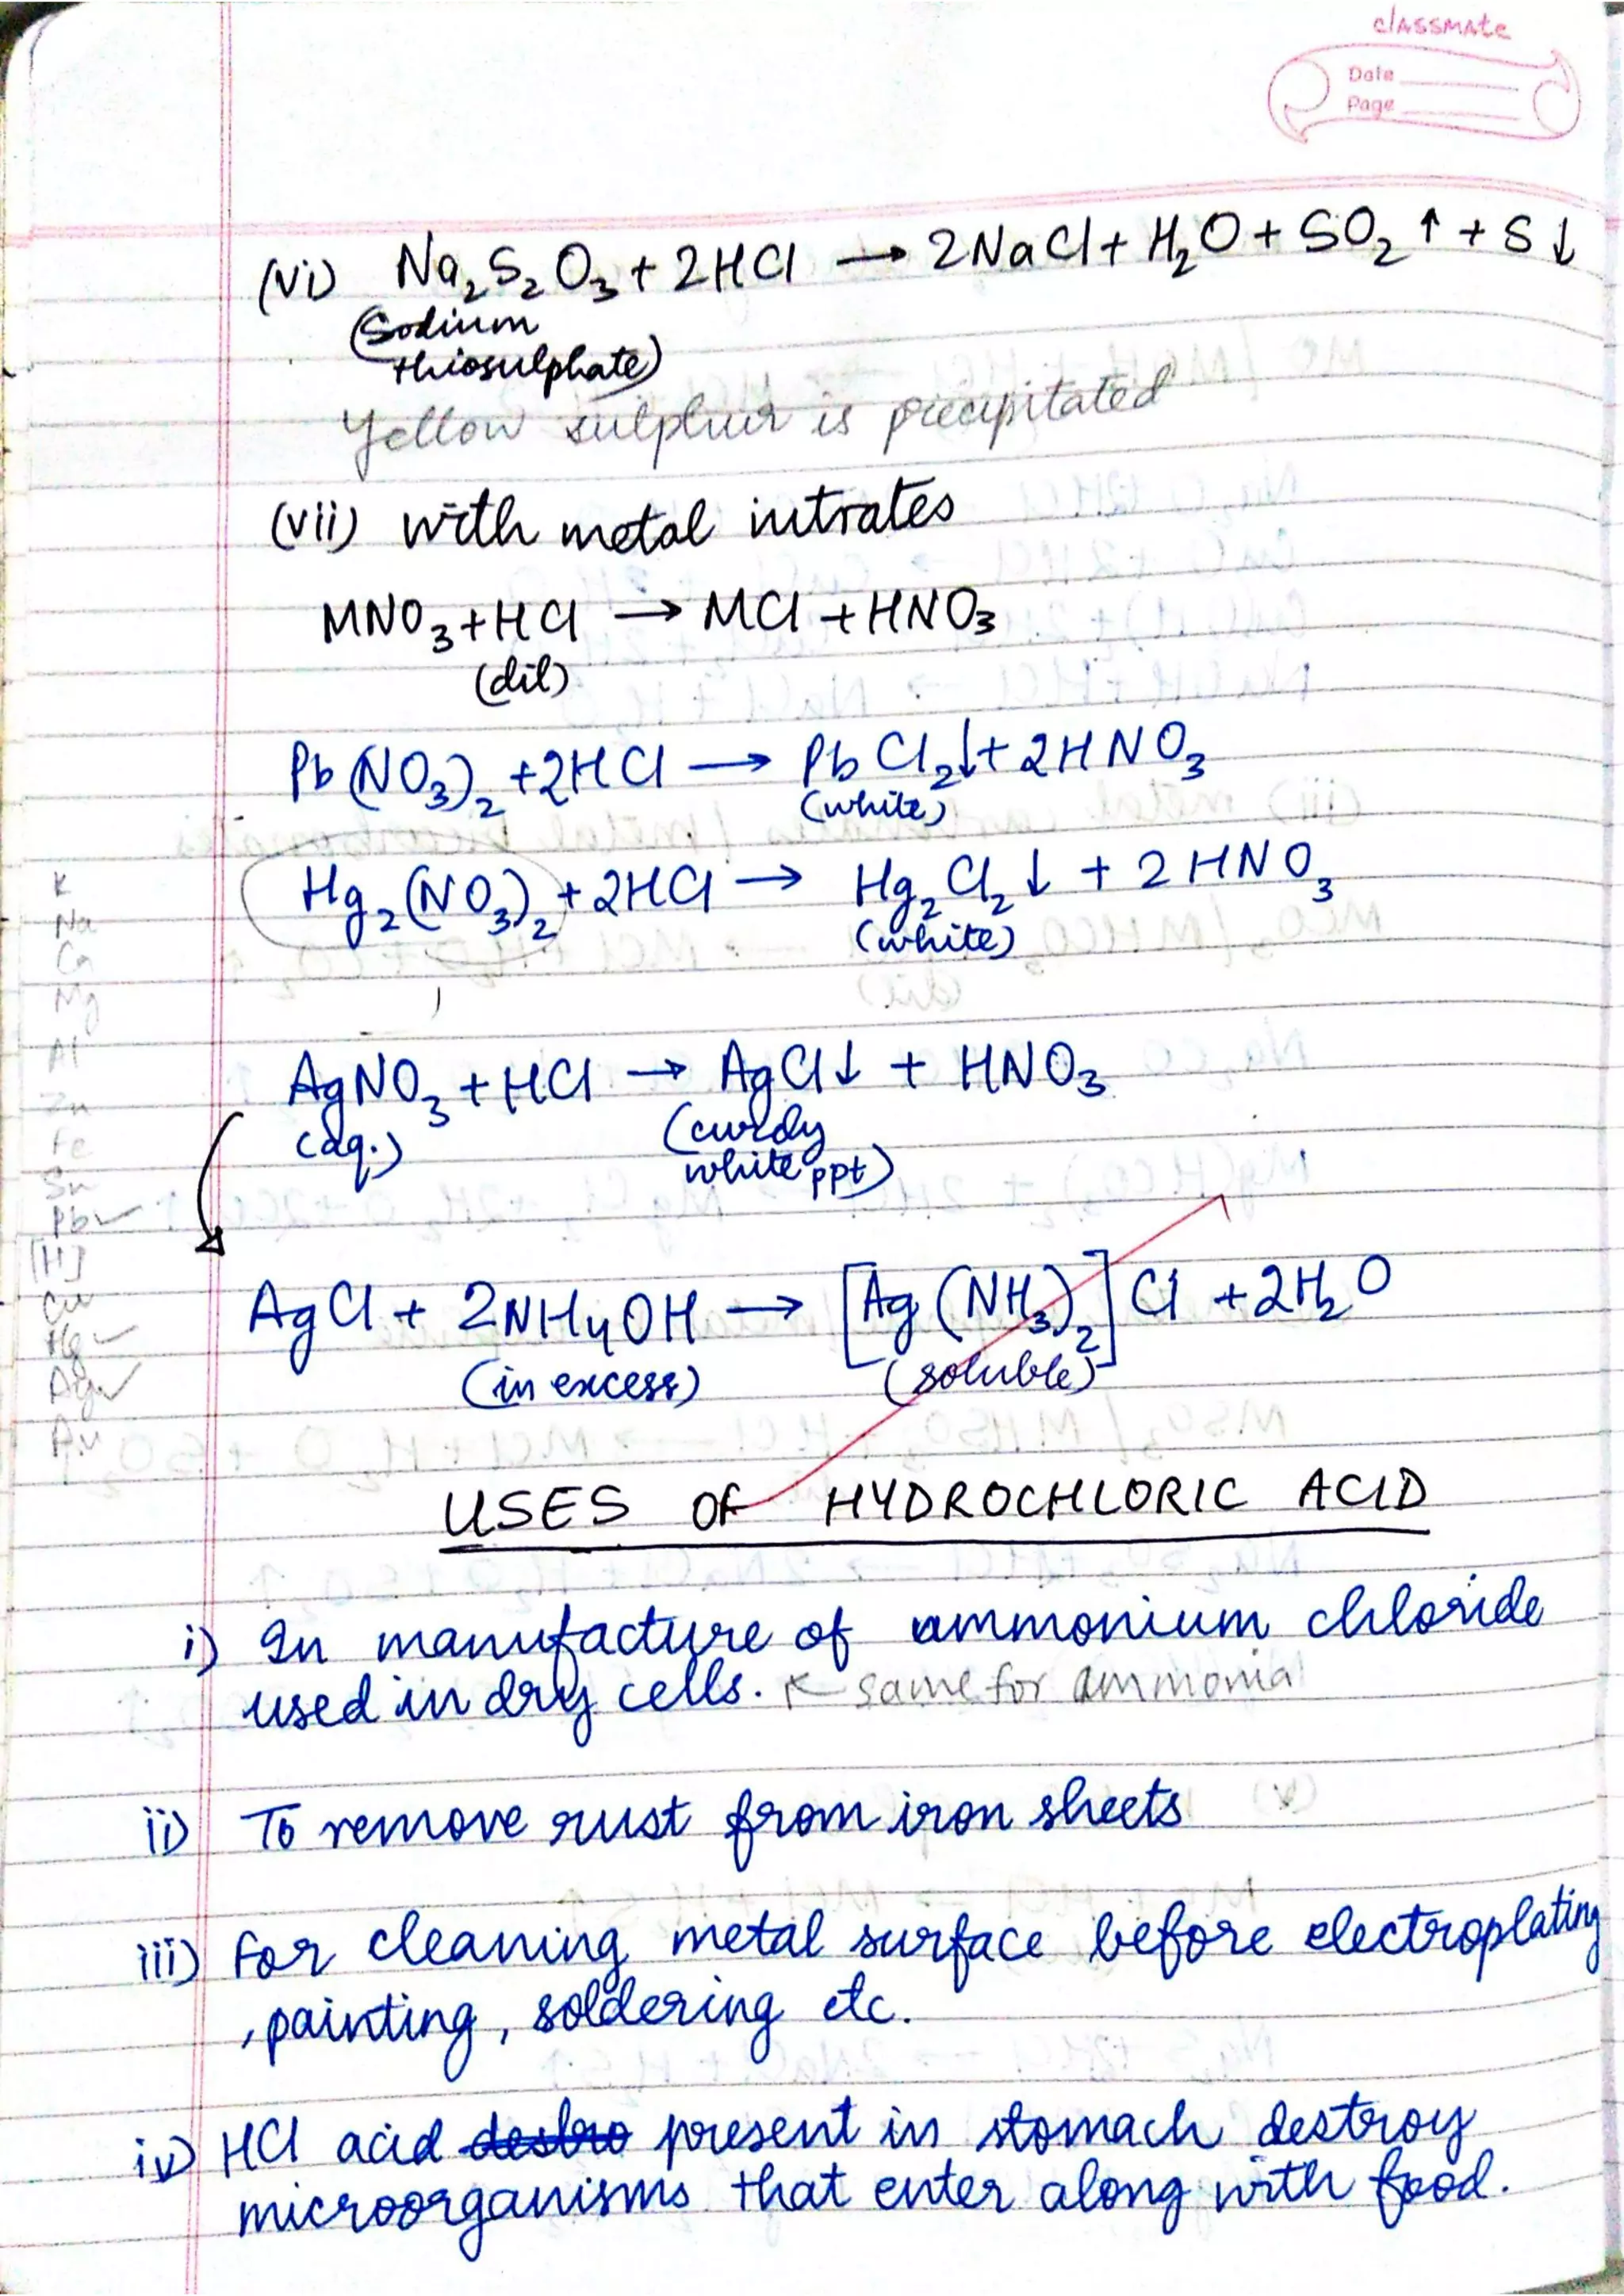 classmate
Date
Page
(vi) Na₂S₂O₃ + 2HCl → 2NaCl + H₂O + SO₂ ↑ + S ↓
(Sodium
thiosulphate)
Yellow sulphur is precipitated
(vii) with metal nitrates
MNO₃ + HCl → MCl + HNO₃
(dil)
Pb(NO₃)₂ + 2HCl → PbCl₂↓ + 2HNO₃
(white)
Hg₂(NO₃)₂ + 2HCl → Hg₂Cl₂ ↓ + 2HNO₃
(white)
AgNO₃ + HCl → AgCl↓ + HNO₃
(aq.) (curdy
white ppt)
AgCl + 2NH₄OH → [Ag(NH₃)₂]Cl + 2H₂O
(in excess) (soluble)
K
Na
Ca
Mg
Al
Zn
Fe
Sn
Pb ✓
[H]
Cu
Hg ✓
Ag ✓
Au
USES OF HYDROCHLORIC ACID
i) In manufacture of ammonium chloride
used in dry cells. ← same for ammonia
ii) To remove rust from iron sheets
iii) For cleaning metal surface before electroplating
, painting, soldering etc.
iv) HCl acid destro present in stomach destroy
microorganisms that enter along with food.